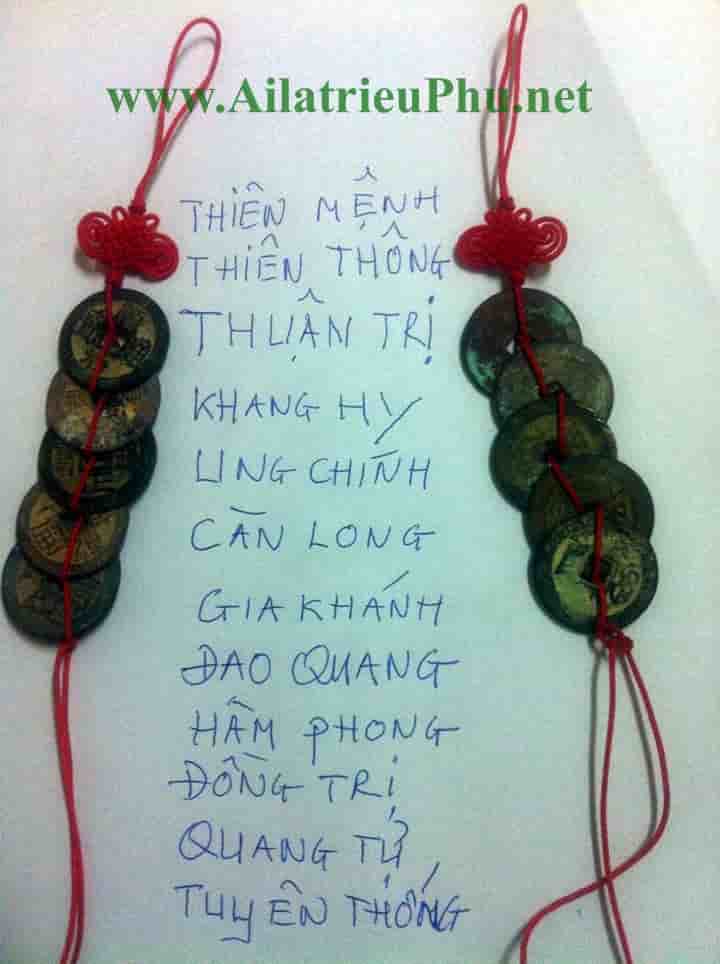 www.AilatrieuPhu.net
THIÊN MỆNH
THIÊN THÔNG
THUẬN TRỊ
KHANG HY
UNG CHÍNH
CÀN LONG
GIA KHÁNH
ĐAO QUANG
HẦM PHONG
ĐỒNG TRỊ
QUANG TỰ
TUYÊN THỐNG